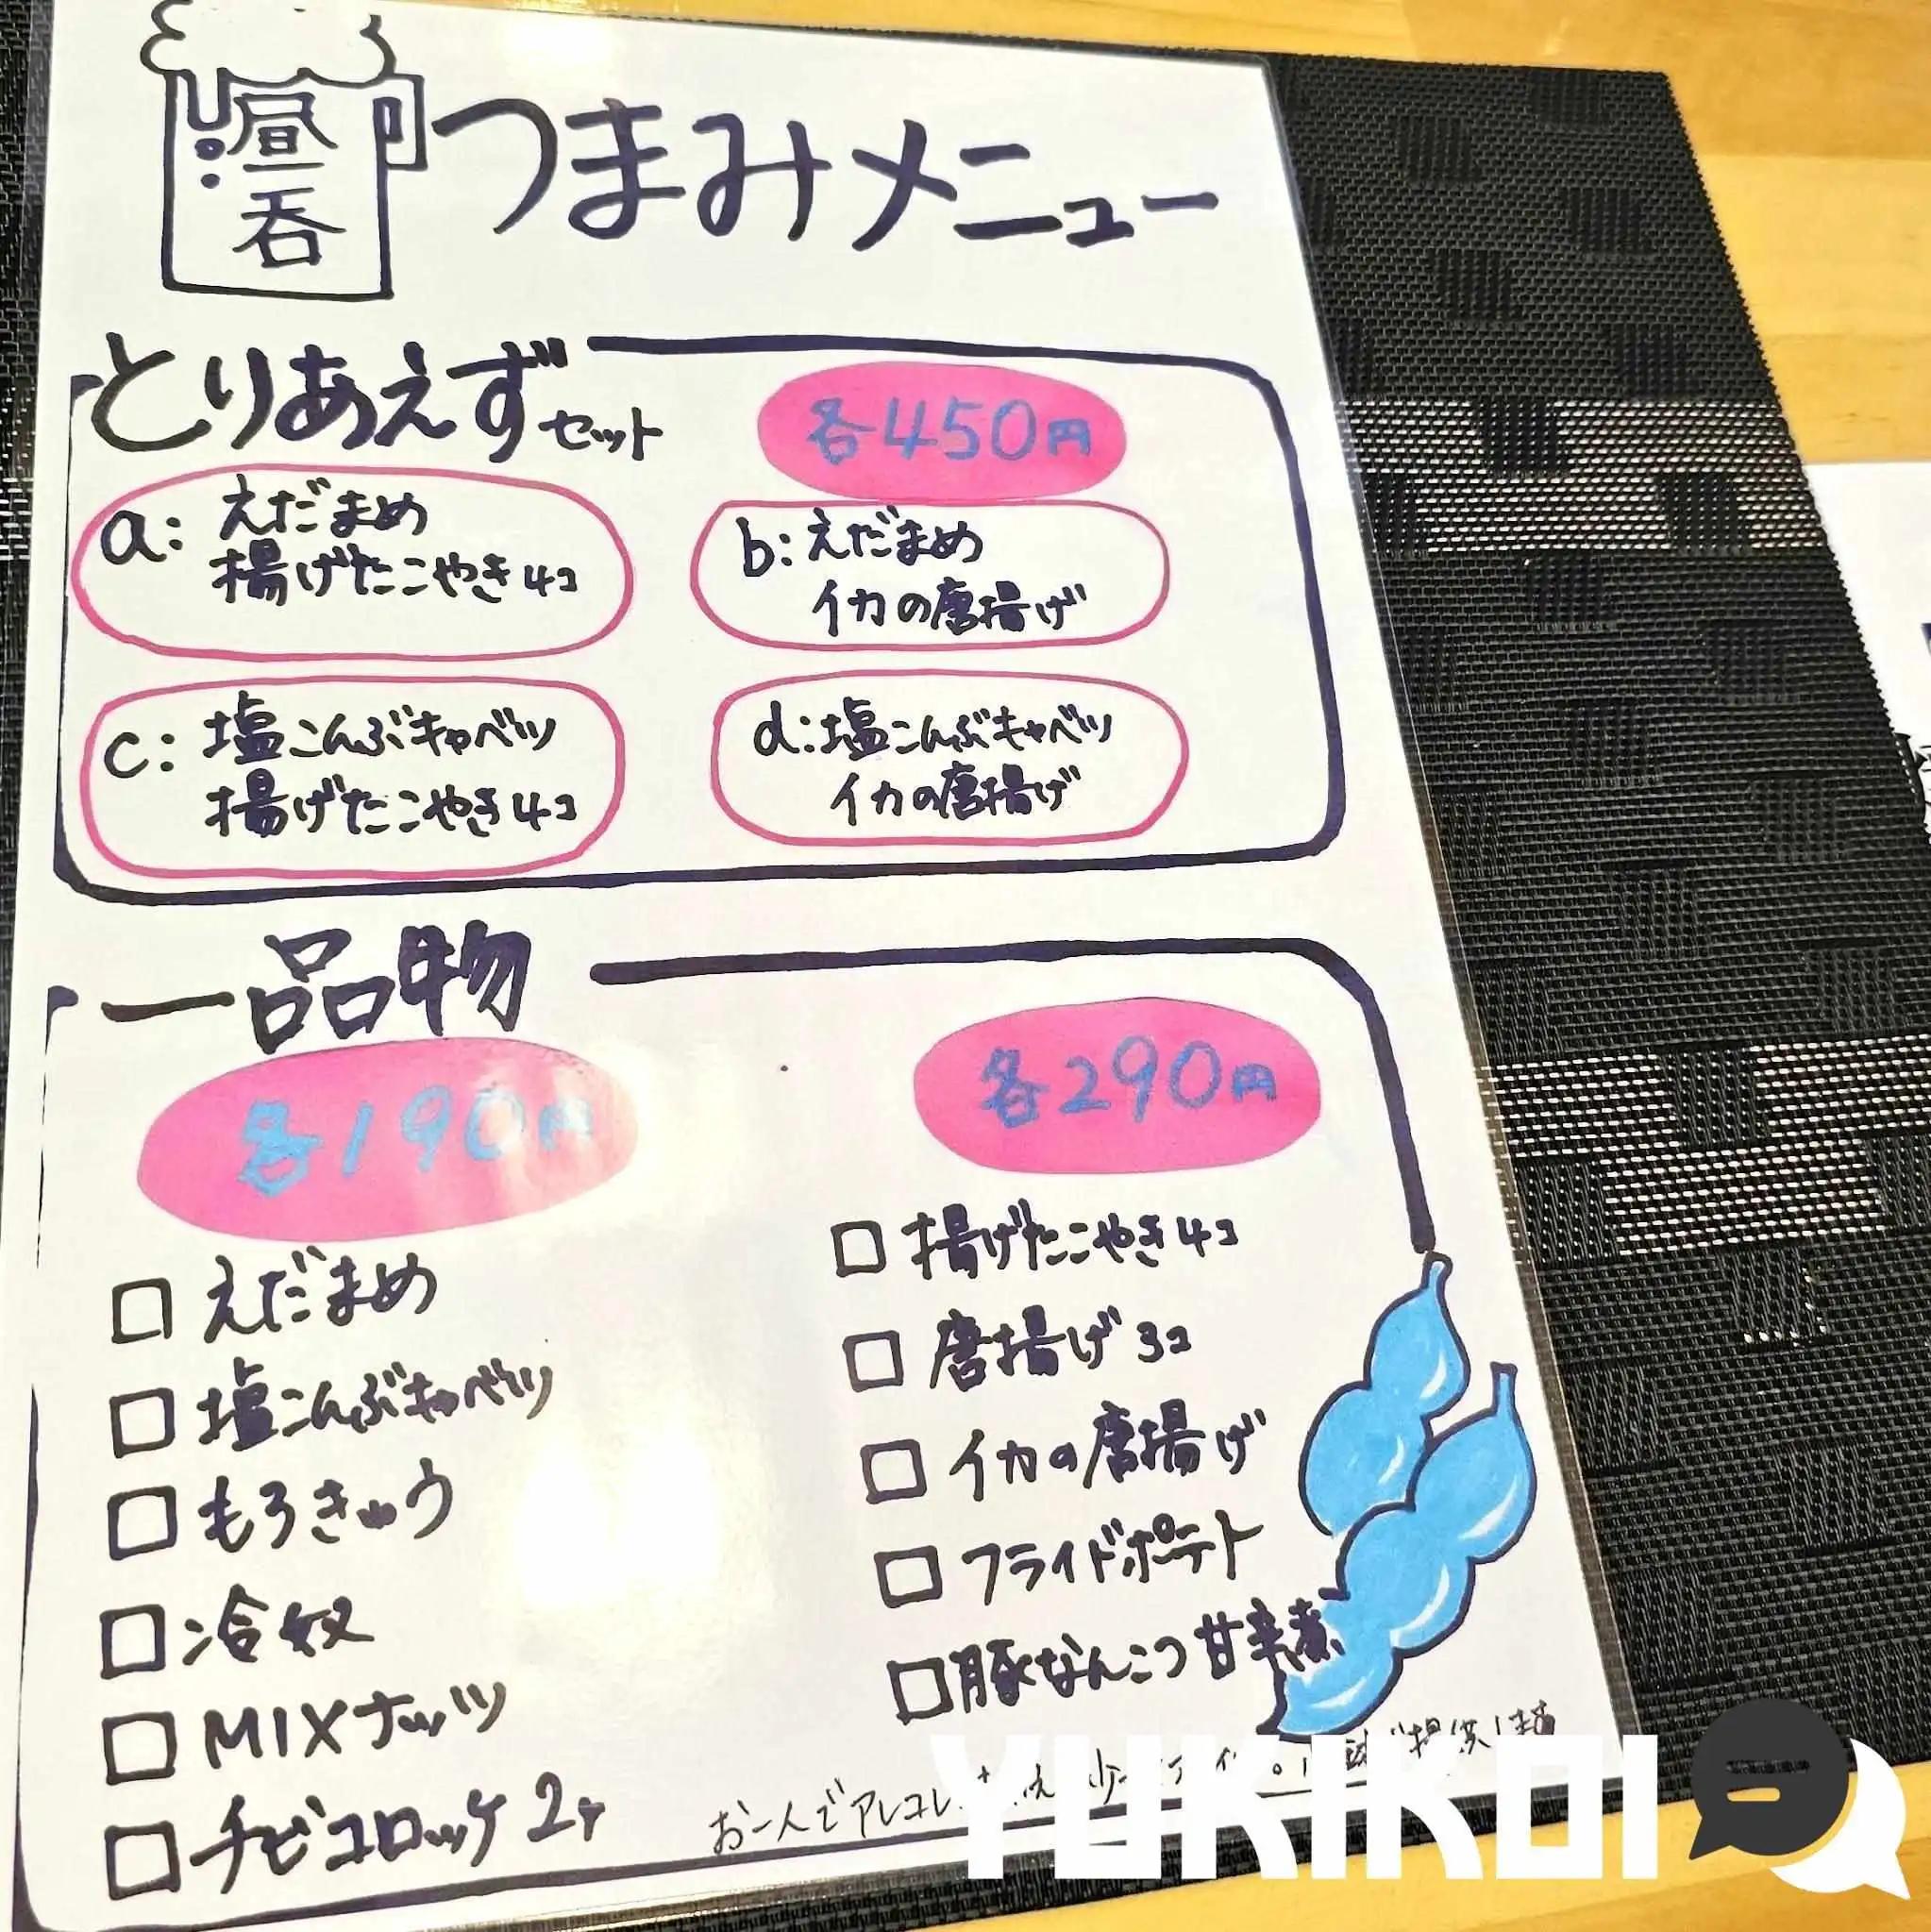 昼呑
つまみメニュー
とりあえずセット
各450円
a: えだまめ
揚げたこやき4コ
b: えだまめ
イカの唐揚げ
c: 塩こんぶキャベツ
揚げたこやき4コ
d: 塩こんぶキャベツ
イカの唐揚げ
一品物
各190円
□ えだまめ
□ 塩こんぶキャベツ
□ もろきゅう
□ 冷奴
□ MIXナッツ
□ チビコロッケ2ケ
各290円
□ 揚げたこやき4コ
□ 唐揚げ3コ
□ イカの唐揚げ
□ フライドポテト
□ 豚なんこつ甘辛煮
お一人でアレコレ
YUKIKOI